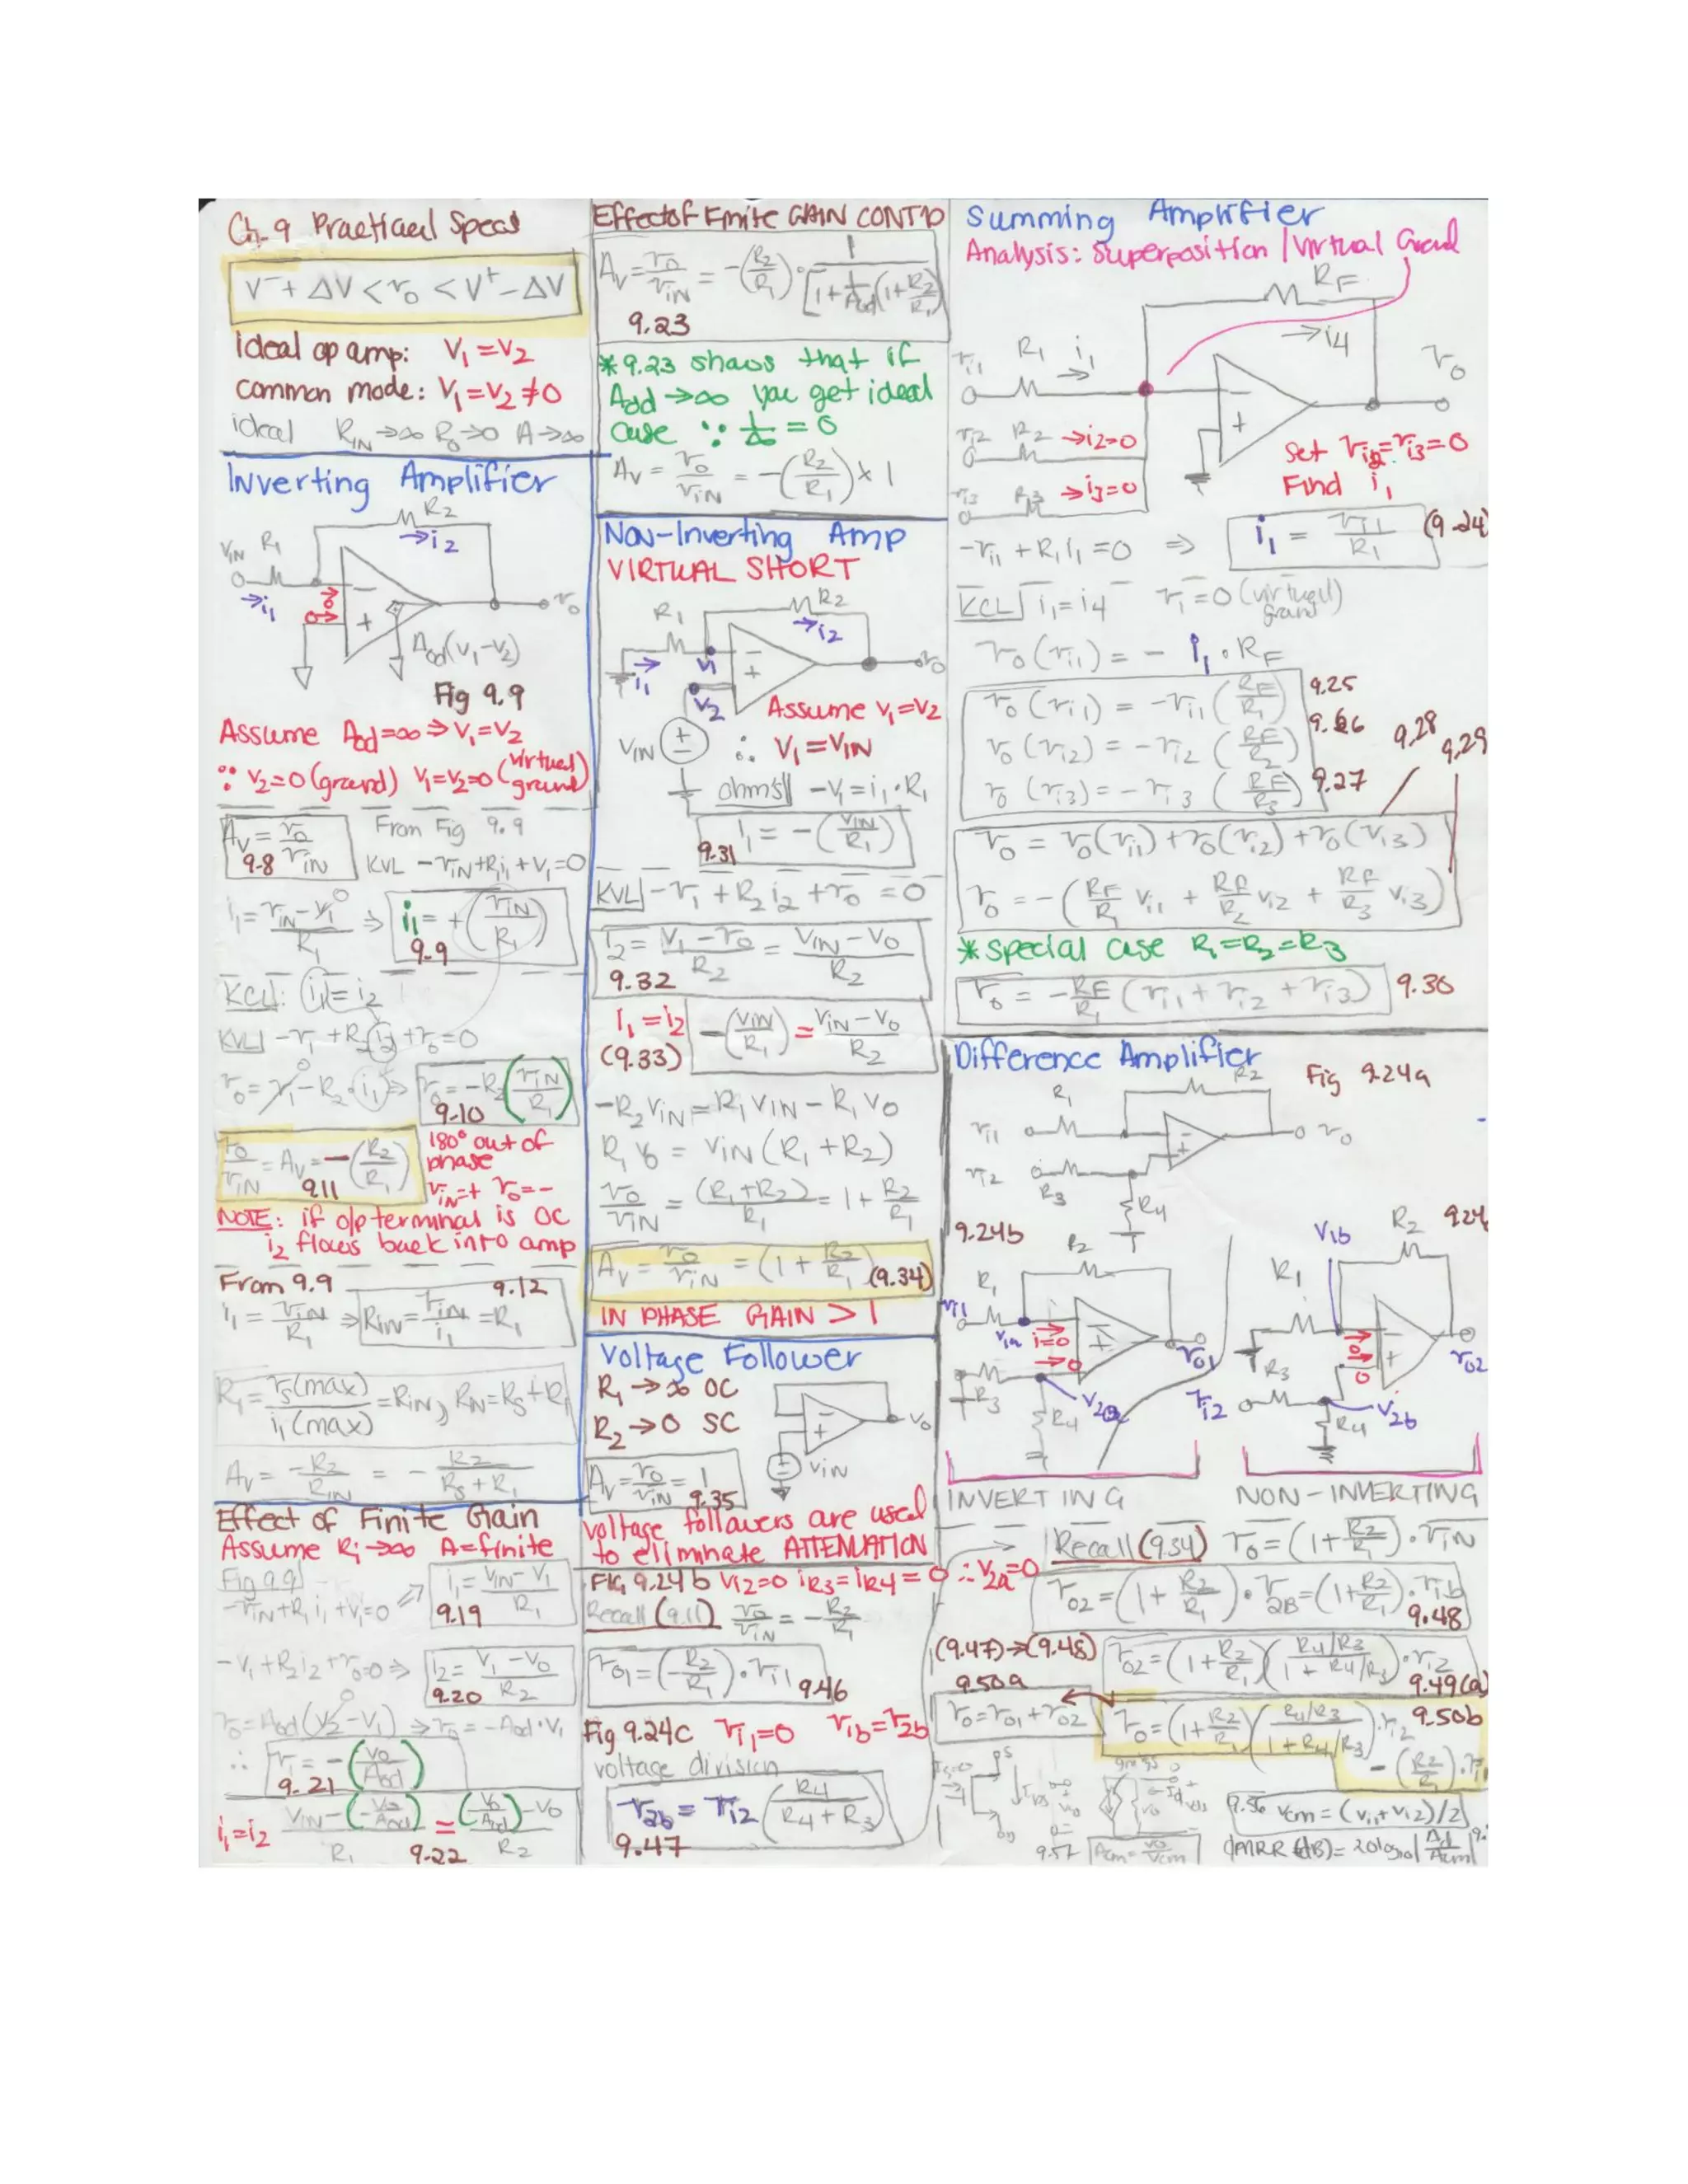 Ch-9 Practical Specs
V⁻ + ΔV < v₀ < V⁺ - ΔV
ideal op amp: V₁ = V₂
common mode: V₁ = V₂ ≠ 0
ideal R_IN → ∞ R₀ → 0 A → ∞
Inverting Amplifier
R₂
→ i₂
V_IN R₁
→ i₁
0 →
0 →
−
+
v₀
A_od(V₁-V₂)
Fig 9.9
Assume A_od = ∞ ⇒ V₁ = V₂
∵ V₂ = 0 (ground) V₁ = V₂ = 0 (virtual ground)
A_V = v₀/v_IN
9.8
From Fig 9.9
KVL -v_IN + R₁i₁ + V₁ = 0
i₁ = (v_IN - V₁)/R₁ ⇒ i₁ = +(v_IN/R₁)
0
9.9
KCL: i₁ = i₂
KVL -v₁ + R₂i₂ + v₀ = 0
v₀ = v₁ - R₂·i₁ ⇒ v₀ = -R₂(v_IN/R₁)
0
9.10
v₀/v_IN = A_V = -(R₂/R₁)
9.11
180° out of phase
v_IN = + v₀ = -
NOTE: if o/p terminal is OC
i₂ flows back into amp
From 9.9
9.12
i₁ = v_IN/R₁ ⇒ R_IN = v_IN/i₁ = R₁
R₁ = v_s(max)/i₁(max) = R_IN, R_IN = R_S + R₁
A_V = -R₂/R_IN = - R₂/(R_S + R₁)
Effect of Finite Gain
Assume R_i → ∞ A = finite
Fig 9.9
-v_IN + R₁i₁ + V₁ = 0 ⇒ i₁ = (V_IN - V₁)/R₁
9.19
-V₁ + R₂i₂ + v₀ = 0 ⇒ i₂ = (V₁ - V₀)/R₂
9.20
v₀ = A_od(V₂ - V₁) ⇒ v₀ = -A_od·V₁
0
∴ v₁ = -(V₀/A_od)
9.21
i₁ = i₂ (V_IN - (-V₀/A_od))/R₁ = ((-V₀/A_od) - V₀)/R₂
9.22
Effect of Finite GAIN CONT'D
A_V = v₀/v_IN = -(R₂/R₁) · 1/[1 + 1/A_od(1 + R₂/R₁)]
9.23
* 9.23 shows that if
A_od → ∞ you get ideal
case ∵ 1/∞ = 0
A_V = v₀/v_IN = -(R₂/R₁) × 1
Non-Inverting Amp
VIRTUAL SHORT
R₁
R₂
→ i₂
→
i₁
V₁
V₂
−
+
v₀
Assume V₁ = V₂
V_IN
∴ V₁ = V_IN
ohm's -V₁ = i₁·R₁
i₁ = -(V_IN/R₁)
9.31
KVL -v₁ + R₂i₂ + v₀ = 0
i₂ = (V₁ - v₀)/R₂ = (V_IN - V₀)/R₂
9.32
i₁ = i₂
(9.33)
-(V_IN/R₁) = (V_IN - V₀)/R₂
-R₂V_IN = R₁V_IN - R₁V₀
R₁V₀ = V_IN(R₁ + R₂)
v₀/v_IN = (R₁ + R₂)/R₁ = 1 + R₂/R₁
A_V = v₀/v_IN = (1 + R₂/R₁) (9.34)
IN PHASE GAIN > 1
Voltage Follower
R₁ → ∞ OC
R₂ → 0 SC
−
+
V₀
V_IN
A_V = v₀/v_IN = 1
9.35
voltage followers are used
to eliminate ATTENUATION
FIG 9.24b V_i2 = 0 i_R3 = i_R4 = 0 ∴ V_2a = 0
Recall (9.11) v₀/v_IN = -R₂/R₁
v₀₁ = (-R₂/R₁)·v_i1
9.46
Fig 9.24c v_i1 = 0 v_1b = v_2b
voltage division
v_2b = v_i2 (R₄/(R₄ + R₃))
9.47
Summing Amplifier
Analysis: Superposition / Virtual Grand
R_F
→ i₄
v_i1 R₁ i₁
→
v_i2 R₂ → i₂ = 0
v_i3 R₃ → i₃ = 0
+
v₀
Set v_i2 = v_i3 = 0
Find i₁
-v_i1 + R₁i₁ = 0 ⇒ i₁ = v_i1/R₁ (9.24)
KCL i₁ = i₄ v₁ = 0 (virtual grand)
v₀(v_i1) = - i₁·R_F
v₀(v_i1) = -v_i1 (R_F/R₁) 9.25
v₀(v_i2) = -v_i2 (R_F/R₂) 9.26
v₀(v_i3) = -v_i3 (R_F/R₃) 9.27
9.28
9.29
v₀ = v₀(v_i1) + v₀(v_i2) + v₀(v_i3)
v₀ = -(R_F/R₁ v_i1 + R_F/R₂ v_i2 + R_F/R₃ v_i3)
* special case R₁ = R₂ = R₃
v₀ = -R_F/R₁ (v_i1 + v_i2 + v_i3) 9.30
Difference Amplifier
Fig 9.24a
R₂
R₁
v_i1
v_i2
R₃
R₄
−
+
v₀
9.24b
R₂
R₁
v_i1
V_1a
i=0
→ 0
R₃
R₄
V_2a
v₀₁
V_1b
R₂
9.24
R₁
R₃
v_i2
R₄
V_2b
0
0
+
v₀₂
INVERTING
NON-INVERTING
Recall (9.34) v₀ = (1 + R₂/R₁)·v_IN
v₀₂ = (1 + R₂/R₁)·v_2B = (1 + R₂/R₁)·v_1b
9.48
(9.47) → (9.48)
v₀₂ = (1 + R₂/R₁)((R₄/R₃)/(1 + R₄/R₃))·v_i2
9.49(a)
9.50a
v₀ = v₀₁ + v₀₂
v₀ = (1 + R₂/R₁)((R₄/R₃)/(1 + R₄/R₃))·v_i2 9.50b
- (R₂/R₁)·v_i
9.56 V_cm = (v_i1 + v_i2)/2
9.57 A_cm = v₀/v_cm
CMRR (dB) = 20log₁₀|A_d/A_cm| 9.